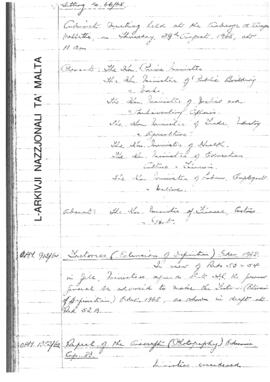 Sitting No. 66/68
Cabinet Meeting held at the Auberge
Valletta, on Thursday, 29th August, 1968, at
11 am
Present: The Hon. Prime Minister
The Hon. Minister of Public Building
& Works.
The Hon. Minister of Justice and
Parliamentary Affairs.
The Hon. Minister of Trade, Industry
& Agriculture.
The Hon. Minister of Health.
The Hon. Minister of Education
Culture & Tourism.
The Hon. Minister of Labour, Employment
& Welfare.
Absent: The Hon. Minister of Finance, Customs
& Port.
L-ARKIVJI NAZZJONALI TA' MALTA
Factories (Extension of Definition) Order 1968.
In view of Reds 53-54
in file, Ministers agreed that
be advised to make the Factories (Extension
of Definition) Order, 1968, as shown in draft at
Red 52A.
Repeal of the Aircraft (Photography) Ordinance
Cap. 83.
Ministers considered